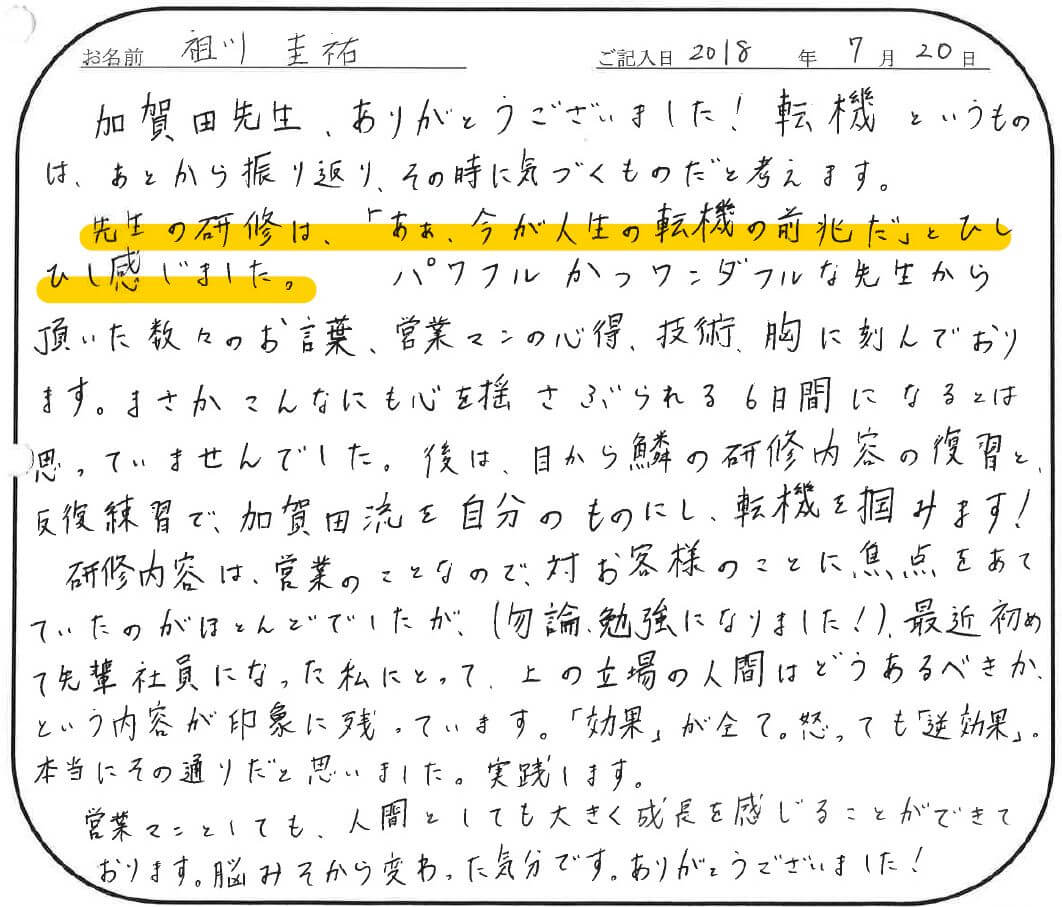 お名前 祖川 圭祐 ご記入日 2018 年 7 月 20 日
加賀田先生、ありがとうございました！転機というもの
は、あとから振り返り、その時に気づくものだと考えます。
先生の研修は、「あぁ、今が人生の転機の前兆だ」とひし
ひし感じました。 パワフルかつワンダフルな先生から
頂いた数々のお言葉、営業マンの心得、技術、胸に刻んでおり
ます。まさかこんなにも心を揺さぶられる6日間になるとは
思っていませんでした。後は、目から鱗の研修内容の復習と、
反復練習で、加賀田流を自分のものにし、転機を掴みます！
研修内容は、営業のことなので、対お客様のことに焦点をあて
ていたのがほとんどでしたが、(勿論、勉強になりました！)、最近初め
て先輩社員になった私にとって、上の立場の人間はどうあるべきか、
という内容が印象に残っています。「効果」が全て。怒っても「逆効果」。
本当にその通りだと思いました。実践します。
営業マンとしても、人間としても大きく成長を感じることができて
おります。脳みそから変わった気分です。ありがとうございました！